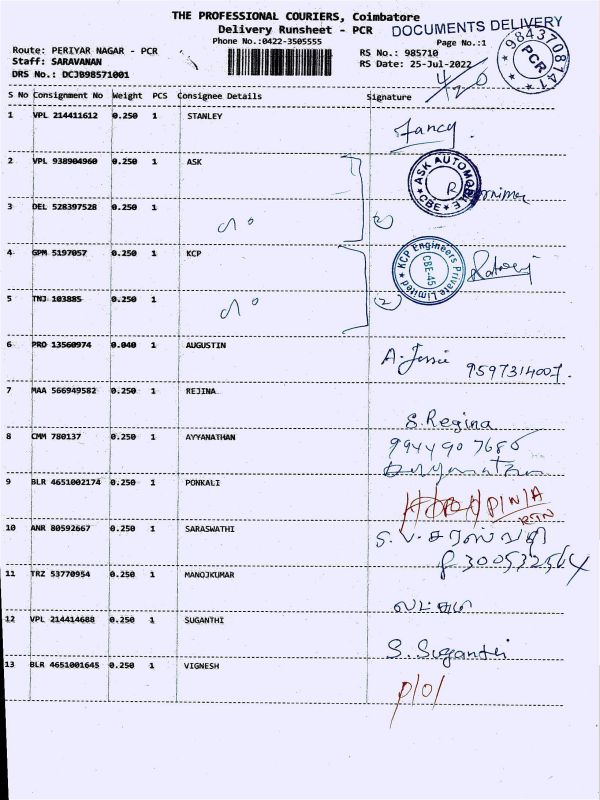 THE PROFESSIONAL COURIERS, Coimbatore
Delivery Runsheet - PCR
DOCUMENTS DELIVERY
Phone No.:0422-3505555
Page No.:1
Route: PERIYAR NAGAR - PCR
RS No.: 985710
Staff: SARAVANAN
RS Date: 25-Jul-2022
DRS No.: DCJB98571001
9843708141
PCR
4/20
S No Consignment No Weight PCS Consignee Details Signature
1 VPL 214411612 0.250 1 STANLEY
Fancy
2 VPL 938904960 0.250 1 ASK
ASK AUTOMOBILE
CBE
3 DEL 528397528 0.250 1
2
4 GPM 5197057 0.250 1 KCP
KCP Engineers Private Limited
CBE-45
5 TNJ 103885 0.250 1
2
6 PRO 13560974 0.040 1 AUGUSTIN
A. Jessie 9597314007.
7 MAA 566949582 0.250 1 REJINA
S. Regina
8 CMM 780137 0.250 1 AYYANATHAN
9944907686
9 BLR 4651002174 0.250 1 PONKALI
P/N/A
RTN
10 ANR 80592667 0.250 1 SARASWATHI
S.V. சரஸ்வதி
11 TRZ 53770954 0.250 1 MANOJKUMAR
12 VPL 214414688 0.250 1 SUGANTHI
S. Suganthi
13 BLR 4651001645 0.250 1 VIGNESH
P/O/